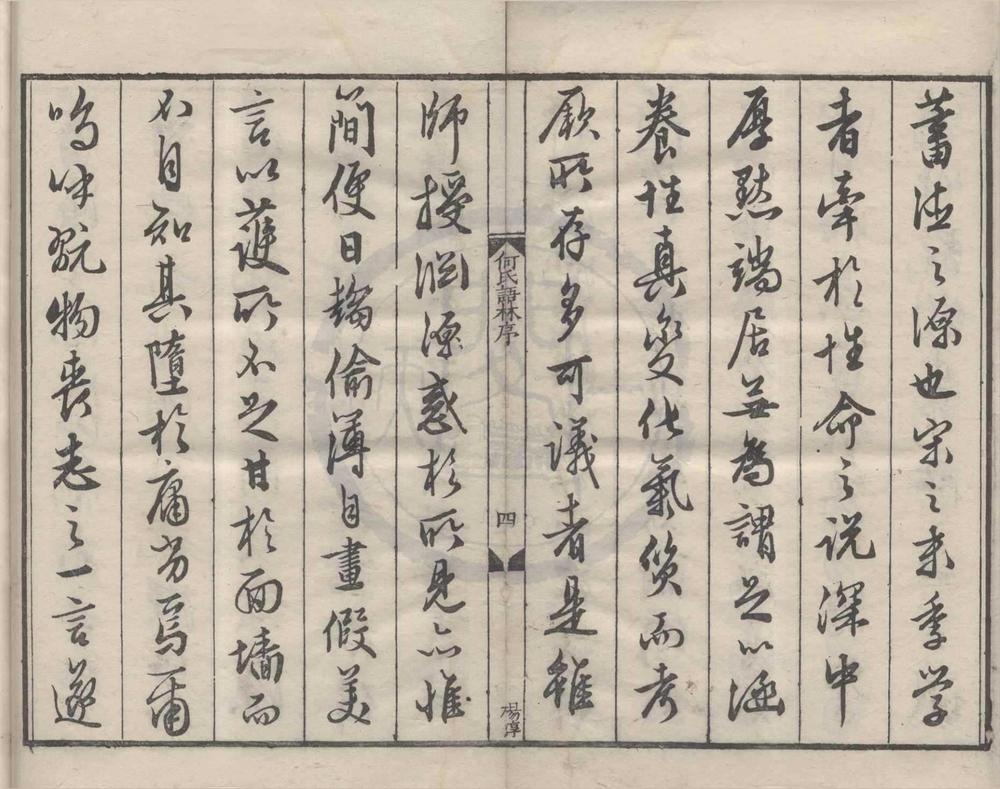 蓄德之源也宋之末季學
者牽於性命之説深中
厚默端居無為謂足以涵
養性真變化氣質而考
厥所存多可議者是雖
何氏語林序
四
楊淳
師授淵源惑於所見亦惟
簡便日趨偷薄自畫假美
言以護所不足甘於面墻而
不自知其墮於庸劣焉爾
嗚呼翫物喪志之一言遂